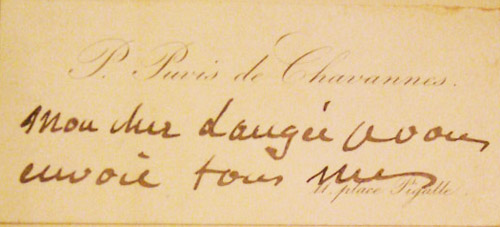 P. Puvis de Chavannes.
Mon cher Daugée je vous
envoie tous mes
11. place Pigalle.